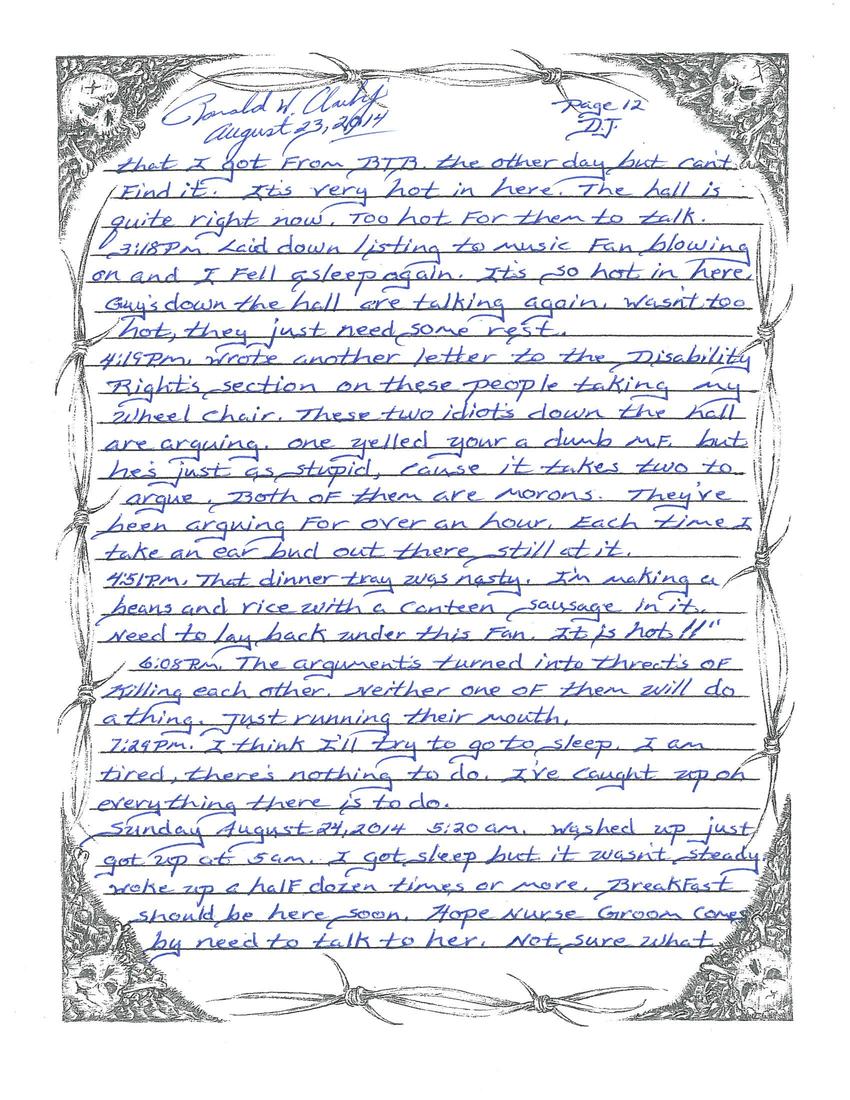 Ronald W. Clark Jr
Page 12
August 23, 2014
D.J.
that I got From BTB. the other day but can't
Find it. It's very hot in here. The hall is
quite right now. Too hot For them to talk.
3:18 Pm Laid down listing to music Fan blowing
on and I Fell asleep again. It's so hot in here.
Guy's down the hall are talking again. Wasn't too
hot, they just need some rest.
4:19 Pm. Wrote another letter to the Disability
Right's section on these people taking my
Wheel Chair. These two idiot's down the hall
are arguing. one yelled your a dumb M.F. but
he's just as stupid, cause it takes two to
argue. Both of them are morons. They've
been arguing For over an hour. Each time I
take an ear bud out there still at it.
4:51 Pm. That dinner tray was nasty. I'm making a
beans and rice with a Canteen sausage in it.
Need to lay back under this Fan. It is hot!!"
6:08 Pm. The argument's turned into threat's of
Killing each other. Neither one of them will do
a thing. Just running their mouth.
7:29 Pm. I think I'll try to go to sleep. I am
tired, there's nothing to do. I've caught up on
everything there is to do.
Sunday August 24, 2014 5:20 am. Washed up just
got up at 5 am. I got sleep but it wasn't steady
woke up a half dozen times or more. BreakFast
should be here soon. Hope Nurse Groom comes
by need to talk to her. Not sure what